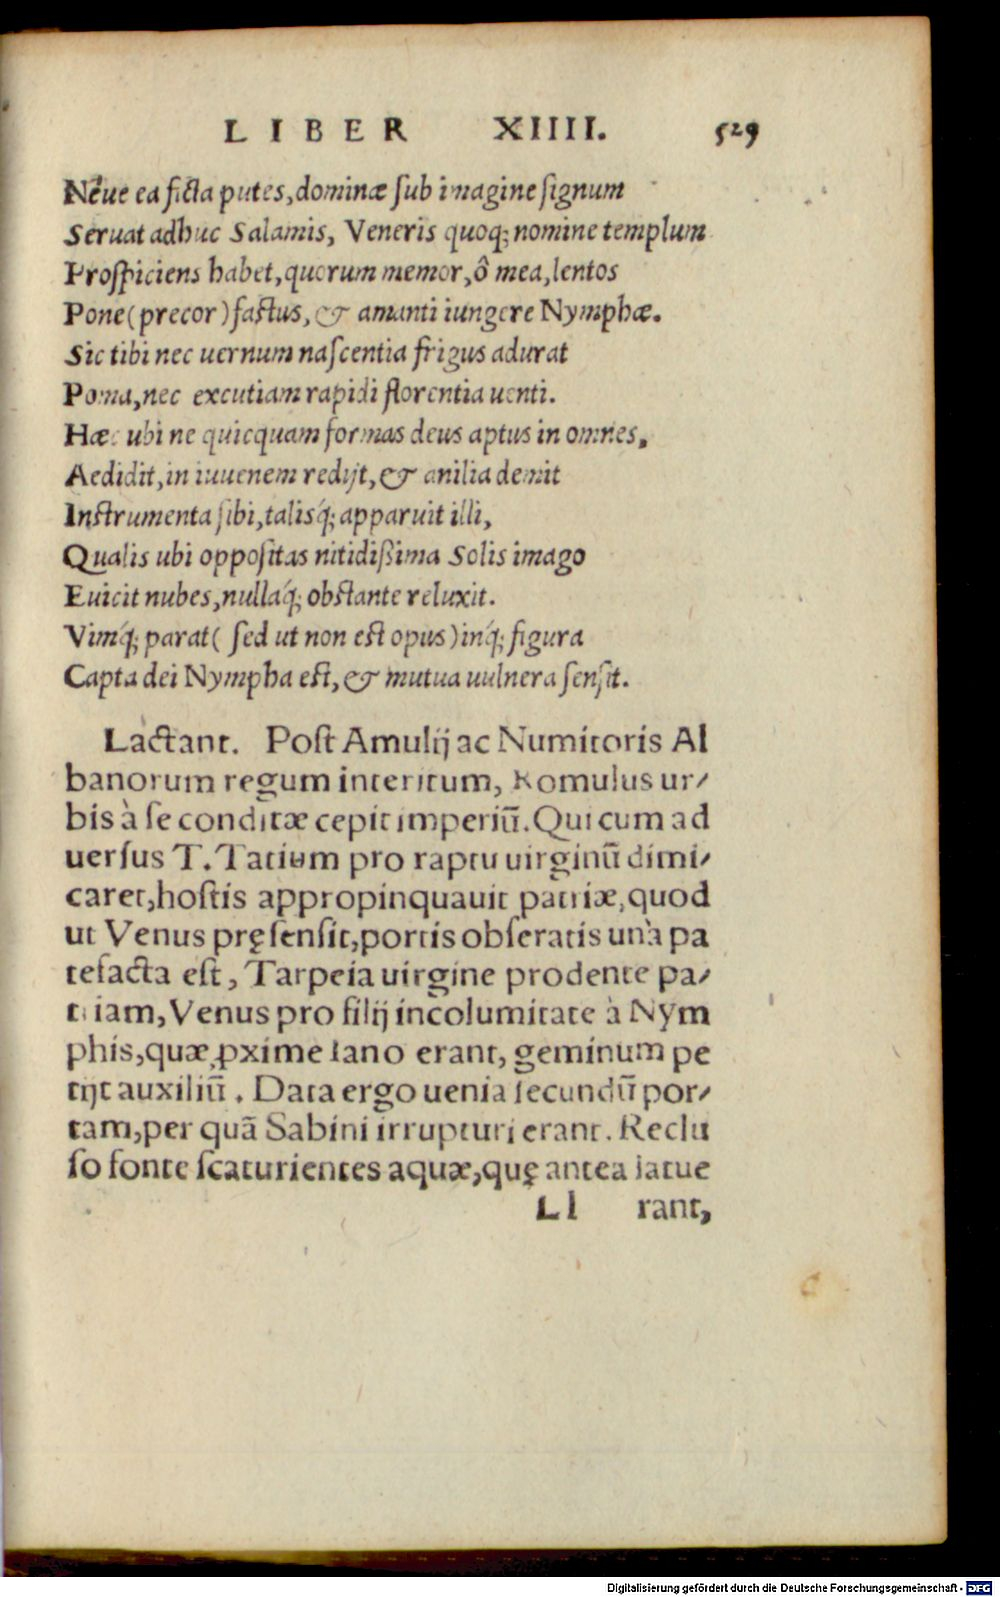 LIBER XIIII. 529
Néue ea ficta putes, dominæ sub imagine signum
Seruat adhuc Salamis, Veneris quoq; nomine templum
Prospiciens habet, quorum memor, ô mea, lentos
Pone (precor) fastus, & amanti iungere Nymphæ.
Sic tibi nec uernum nascentia frigus adurat
Poma, nec excutiam rapidi florentia uenti.
Hæc ubi ne quicquam formas deus aptus in omnes,
Aedidit, in iuuenem redijt, & anilia demit
Instrumenta sibi, talisq́; apparuit illi,
Qualis ubi oppositas nitidißima Solis imago
Euicit nubes, nullaq́; obstante reluxit.
Vimq́; parat ( sed ut non est opus) inq́; figura
Capta dei Nympha est, & mutua uulnera sensit.
Lactant. Post Amulij ac Numitoris Al
banorum regum interitum, Romulus ur/
bis à se conditæ cepit imperiũ. Qui cum ad
uersus T. Tatium pro raptu uirginũ dimi/
caret, hostis appropinquauit patriæ, quod
ut Venus pręsensit, portis obseratis unà pa
tefacta est, Tarpeia uirgine prodente pa/
triam, Venus pro filij incolumitate à Nym
phis, quæ ꝓxime Iano erant, geminum pe
tijt auxiliũ. Data ergo uenia secundũ por/
tam, per quã Sabini irrupturi erant. Reclu
so fonte scaturientes aquæ, quę antea latue
Ll rant,
Digitalisierung gefördert durch die Deutsche Forschungsgemeinschaft - DFG